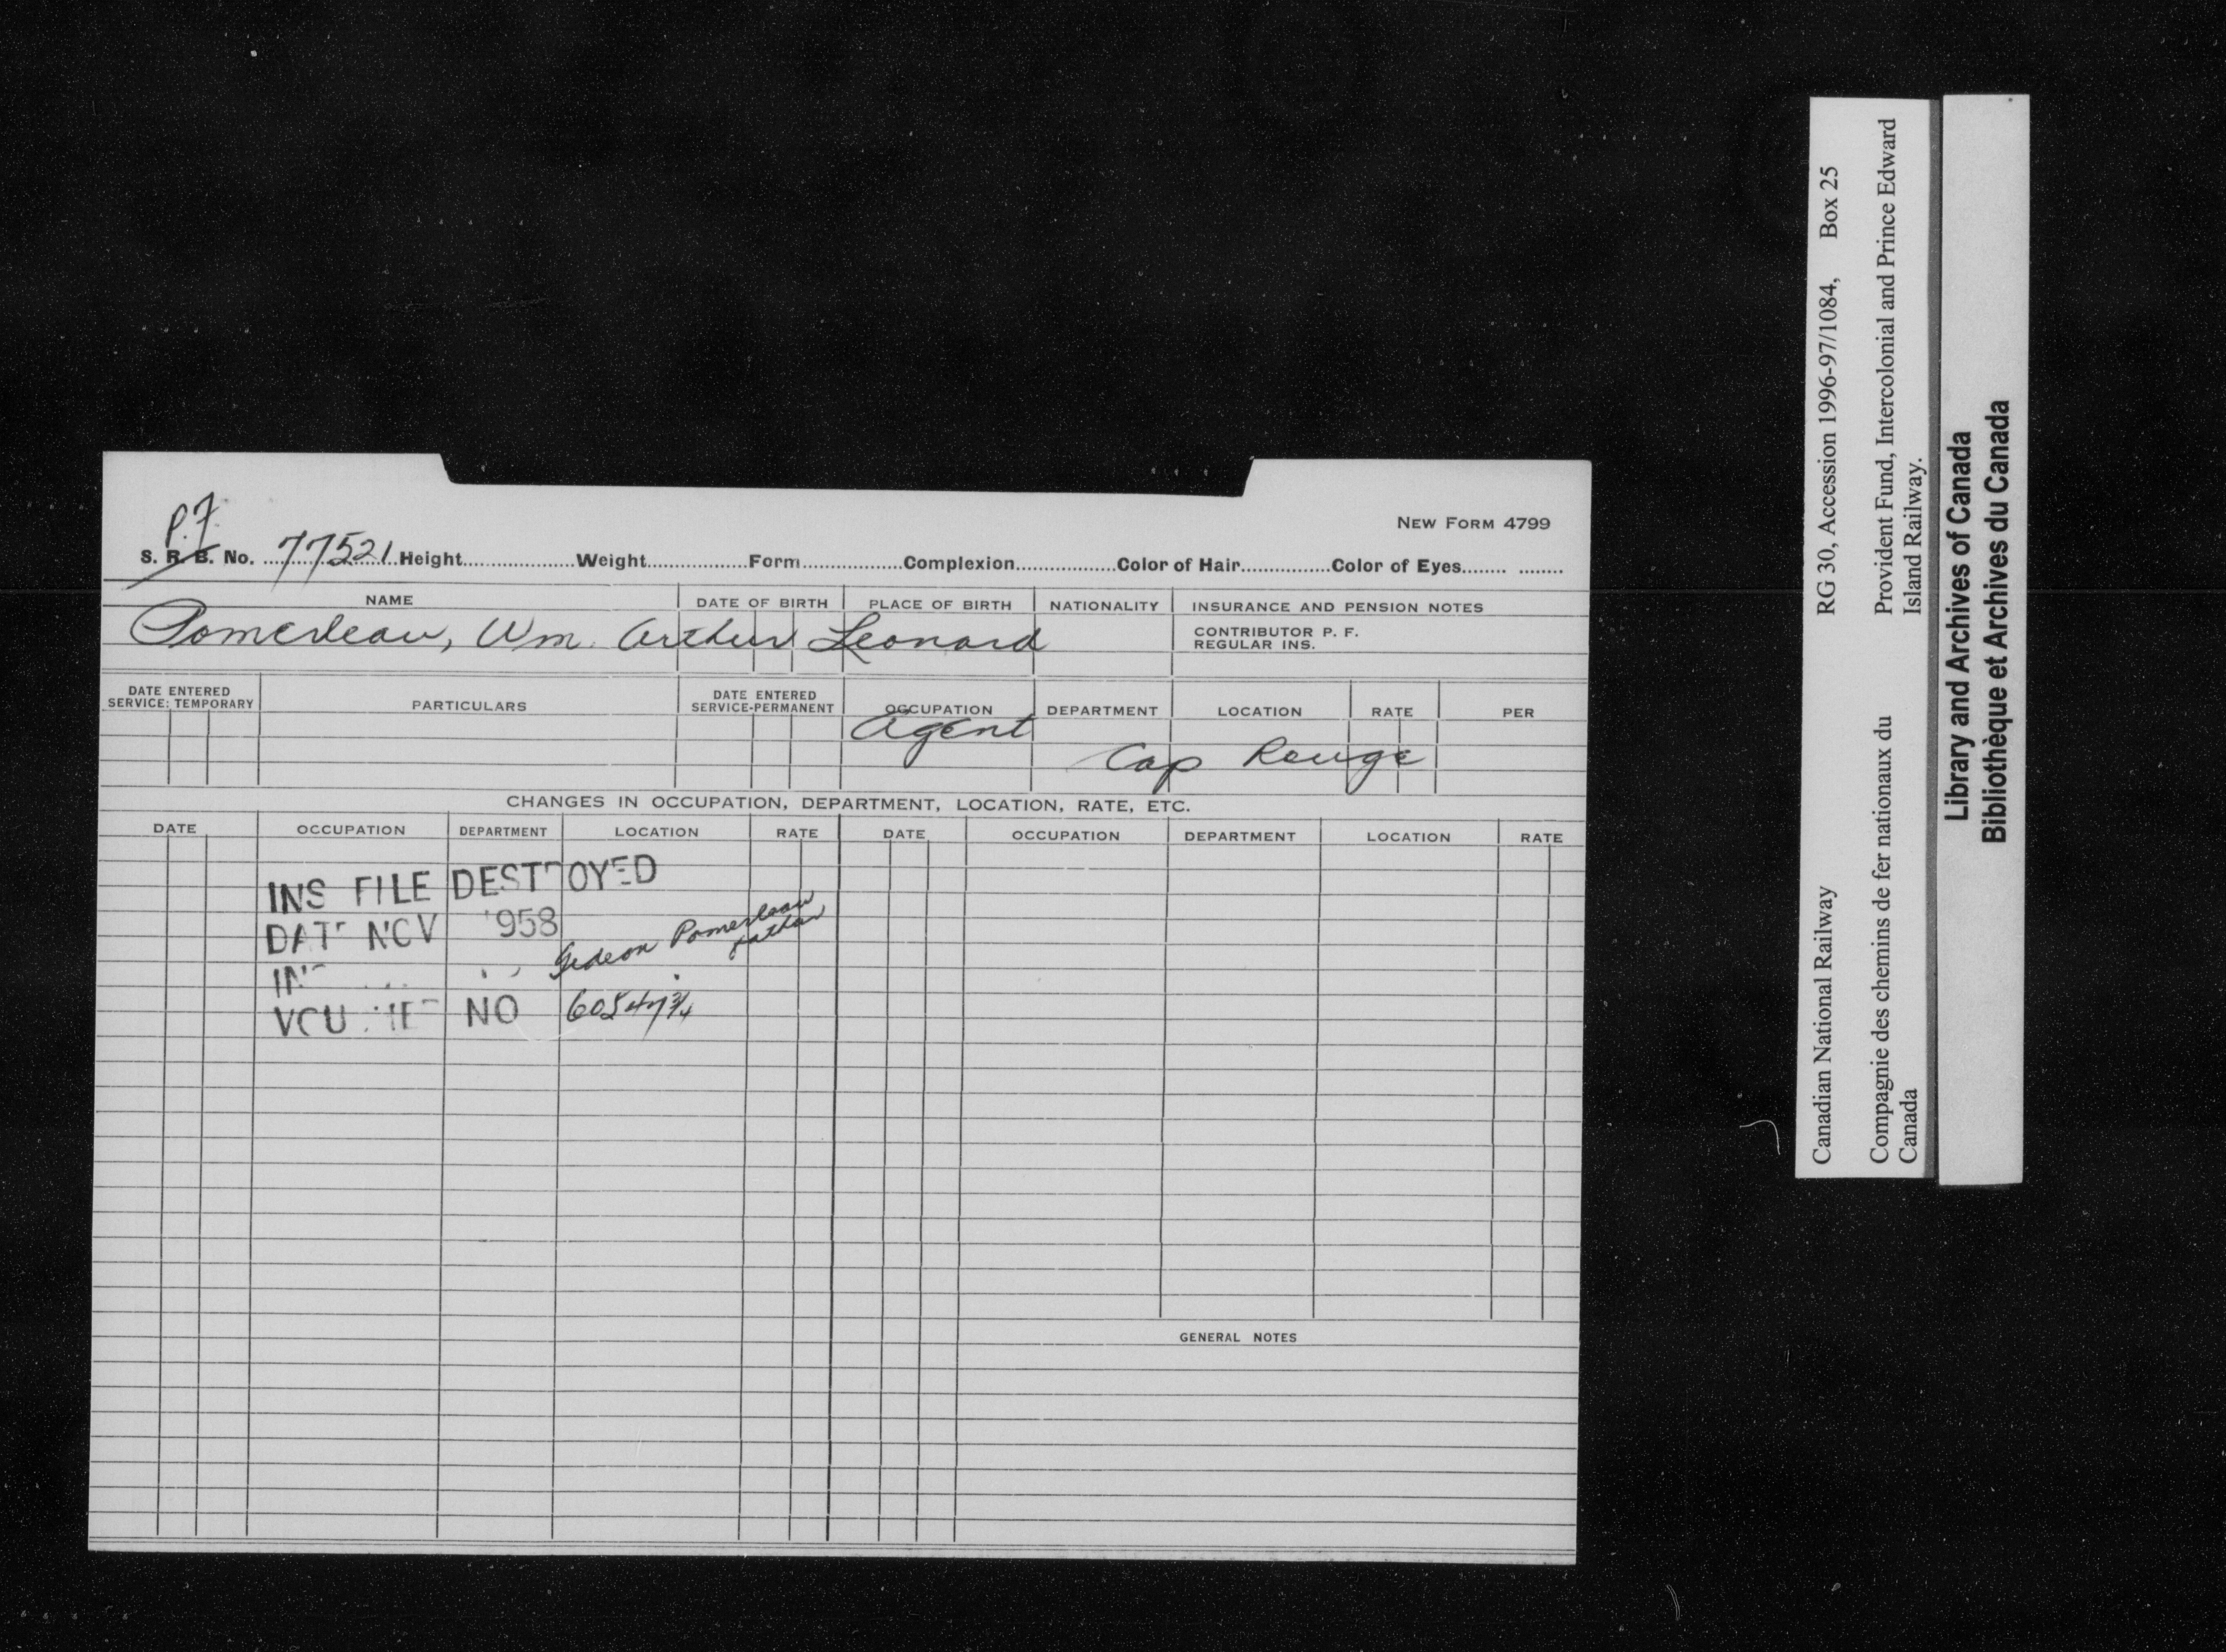 NEW FORM 4799
P.F.
S. R. B. No. 77521 Height Weight Form Complexion Color of Hair Color of Eyes
NAME DATE OF BIRTH PLACE OF BIRTH NATIONALITY INSURANCE AND PENSION NOTES
Pomerleau, Wm. Arthur Leonard
CONTRIBUTOR P. F.
REGULAR INS.
DATE ENTERED SERVICE: TEMPORARY PARTICULARS DATE ENTERED SERVICE-PERMANENT OCCUPATION DEPARTMENT LOCATION RATE PER
Agent
Cap Rouge
CHANGES IN OCCUPATION, DEPARTMENT, LOCATION, RATE, ETC.
DATE OCCUPATION DEPARTMENT LOCATION RATE DATE OCCUPATION DEPARTMENT LOCATION RATE
INS FILE DESTROYED
DATE NOV 1958
Gedeon Pomerleau
father
INS
NO
GENERAL NOTES
Canadian National Railway RG 30, Accession 1996-97/1084, Box 25
Compagnie des chemins de fer nationaux du
Canada
Provident Fund, Intercolonial and Prince Edward
Island Railway.
Library and Archives of Canada
Bibliothèque et Archives du Canada